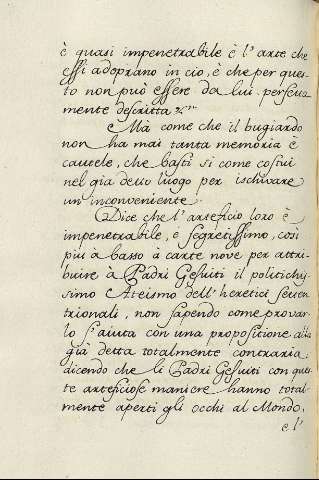 è quasi impenetrabile è l'arte che
essi adoprano in cio, è che per ques-
to non può essere da lui perfetta
mente descritta
Mà come che il bugiardo
non ha mai tanta memoria è
cautele, che basti si come costui
nel gia detto luogo per ischivare
un inconveniente
Dice che l'arteficio loro è
impenetrabile, e segretissimo, così
più à basso à carte nove per attri
buire à Padri Gesuiti il politichis
simo Ateismo dell'heretici setten
trionali, non sapendo come provar
lo s'aiuta con una propositione alla
già detta totalmente contraria,
dicendo che li Padri Gesuiti con ques
te arteficiose maniere hanno total
mente aperti gli occhi al Mondo,
e l'